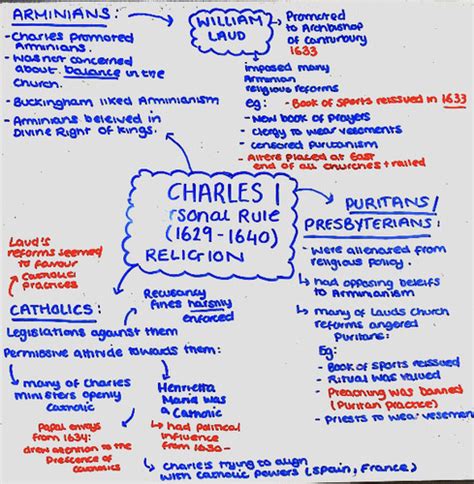 ARMINIANS:
- Charles promoted
Arminians.
- Was not concerned
about balance in the
Church.
- Buckingham liked Arminianism
- Arminians beleived in
Divine Right of Kings.
WILLIAM
LAUD
Promoted
to Archbishop
of Canturbury
1633
imposed many
Arminian
religious reforms
eg: - Book of Sports reissued in 1633
- New book of Prayers
- Clergy to wear vesements
- Censored Puritanism
- Alters placed at East
end of all churches + railed
CHARLES I
rsonal Rule
(1629-1640)
RELIGION
PURITANS/
PRESBYTERIANS:
- Were alienated from
religious policy.
↳ had opposing beleifs
to Arminianism
↳ many of Lauds church
reforms angered
Puritans:
Eg:
- Book of Sports reissued
- Ritual was valued
- Preaching was banned
(Puritan Practice)
- Priests to wear vesements
Laud's
reforms seemed
to favour
Catholic
practices
CATHOLICS:
Recusancy
fines harshly
enforced
Legislations against them
Permissive attitude towards them:
↳ many of Charles
ministers openly
Catholic
Papal envoys
from 1634:
drew attention to the
Prescence of
Catholics
Henrietta
Maria was
a Catholic
↳ had political
influence
from 1630-
↳ Charles trying to align
with Catholic powers (Spain, France)